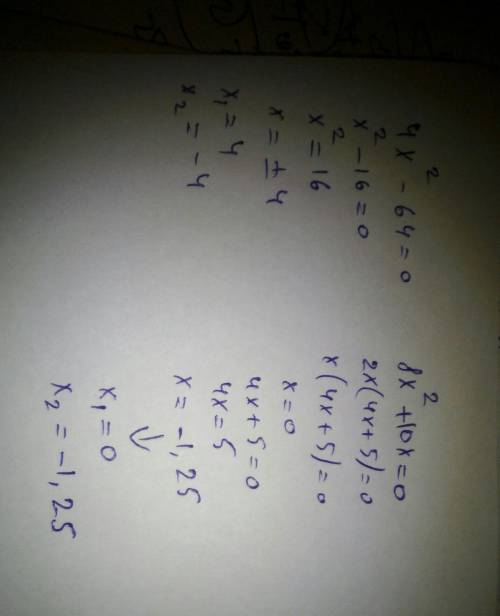 4x² - 64 = 0
x² - 16 = 0
x² = 16
x = ±4
x₁ = 4
x₂ = -4
8x² + 10x = 0
2x(4x + 5) = 0
x(4x + 5) = 0
x = 0
4x + 5 = 0
4x = 5
x = -1,25
↓
x₁ = 0
x₂ = -1,25